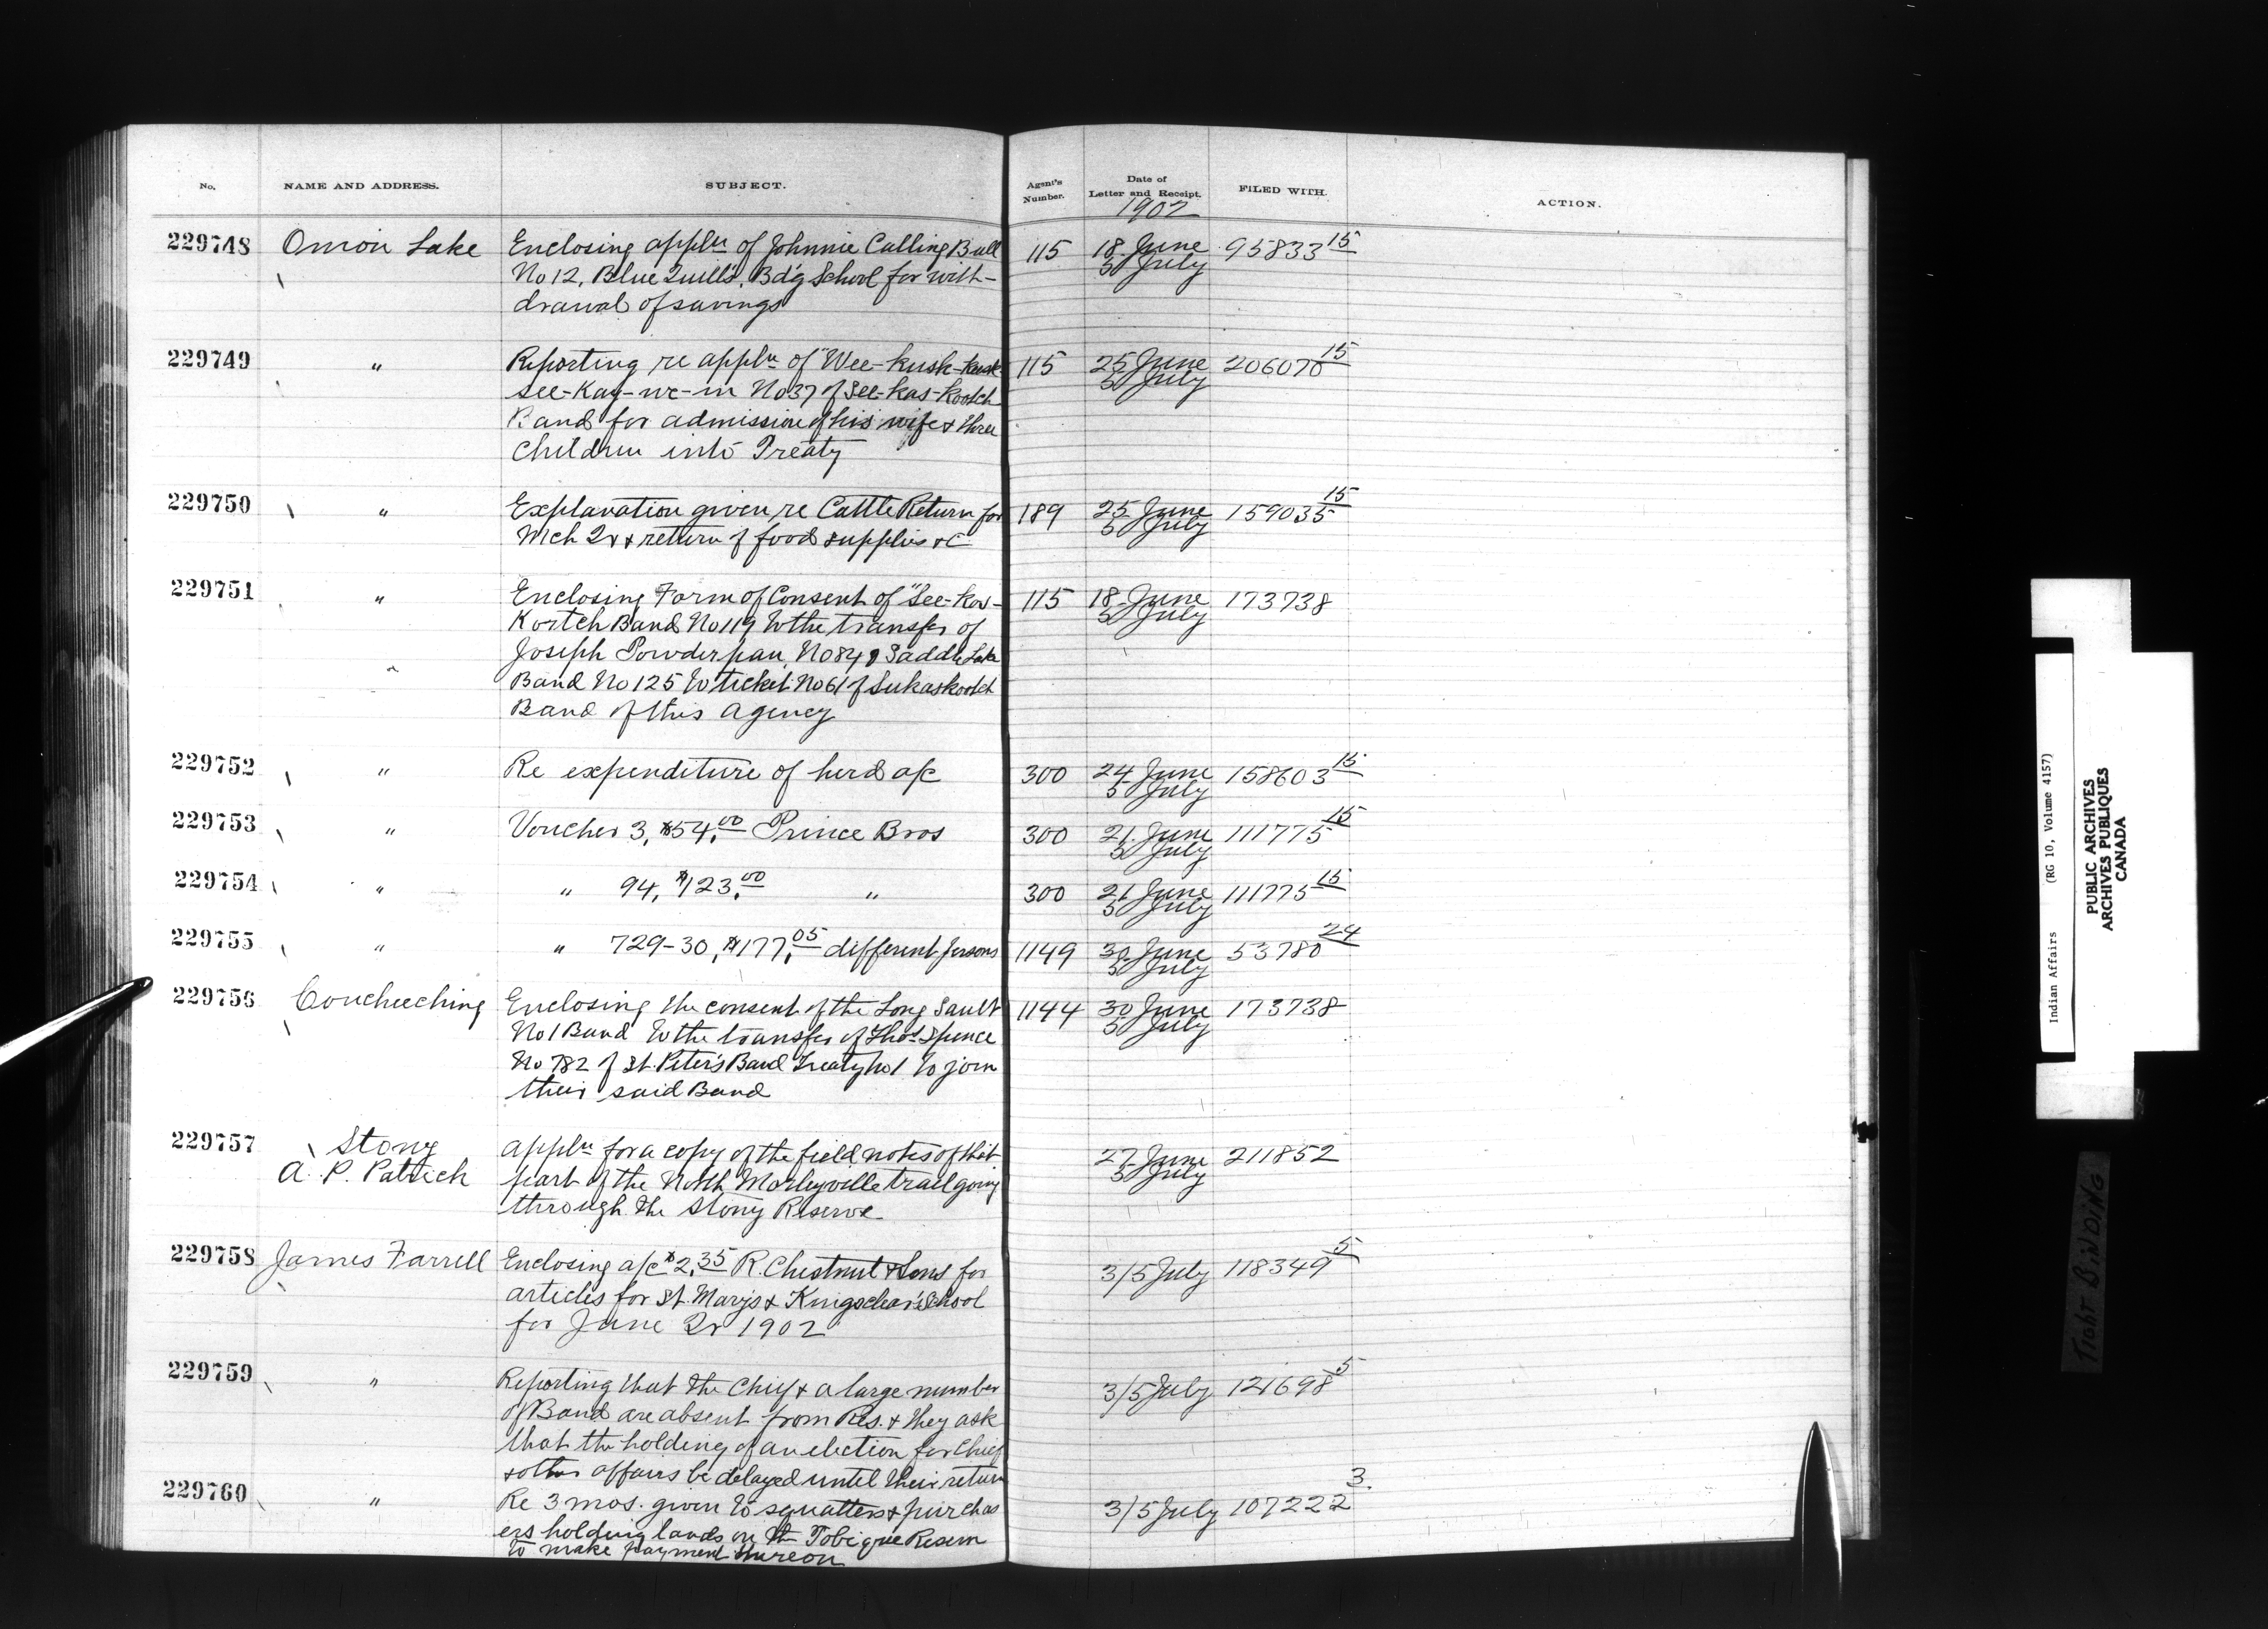 No. NAME AND ADDRESS. SUBJECT. Agent's Number. Date of Letter and Receipt. FILED WITH. ACTION.
1902
229748 Onion Lake Enclosing appln of Johnnie Calling Bull 115 18 June 95833 15
No 12, Blue Quill's, Bdg School for with- 5 July
drawal of savings
229749 " Reporting re appln of "Wee-kusk-kusk- 115 25 June 206070 15
see-Kay-we-in No 37 of See-kas-kootch 5 July
Band for admission of his wife & three
children into Treaty
229750 " Explanation given re Cattle Return for 189 25 June 159035 15
Mch Qr & return of food supplies &c 5 July
229751 " Enclosing Form of Consent of "See-kos- 115 18 June 173738
Kootch Band No 119 to the transfer of 5 July
Joseph Powderpan, No 84 of Saddle Lake
Band No 125 to ticket No 61 of Sukaskootch
Band of this Agency
229752 " Re expenditure of herd a/c 300 24 June 158603 15
5 July
229753 " Voucher 3, $54.00 Prince Bros 300 21 June 111775 15
5 July
229754 " " 94, $123.00 " 300 21 June 111775 15
5 July
229755 " " 729-30, $177.05 different persons 1149 30 June 53780 24
5 July
229756 Coucheeching Enclosing the consent of the Long Sault 1144 30 June 173738
No 1 Band to the transfer of Thos Spence 5 July
No 782 of St. Peter's Band Treaty No 1 to join
their said Band
229757 Stony appln for a copy of the field notes of that 27 June 211852
A. P. Patrick part of the North Morleyville trail going 5 July
through the Stony Reserve
229758 James Farrell Enclosing a/c $2.35 R. Chestnut & Sons for 3/5 July 118349 5
articles for St. Marys & Kingsclear School
for June Qr 1902
229759 " Reporting that the Chief & a large number 3/5 July 121698 5
of Band are absent from Res. & they ask
that the holding of an election for Chief
& other affairs be delayed until their return
229760 " Re 3 mos. given to squatters & purchas 3/5 July 107222 3.
ers holding lands on the Tobique Reserve
to make payment thereon
Indian Affairs (RG 10, Volume 4157)
PUBLIC ARCHIVES
ARCHIVES PUBLIQUES
CANADA
TIGHT BINDING